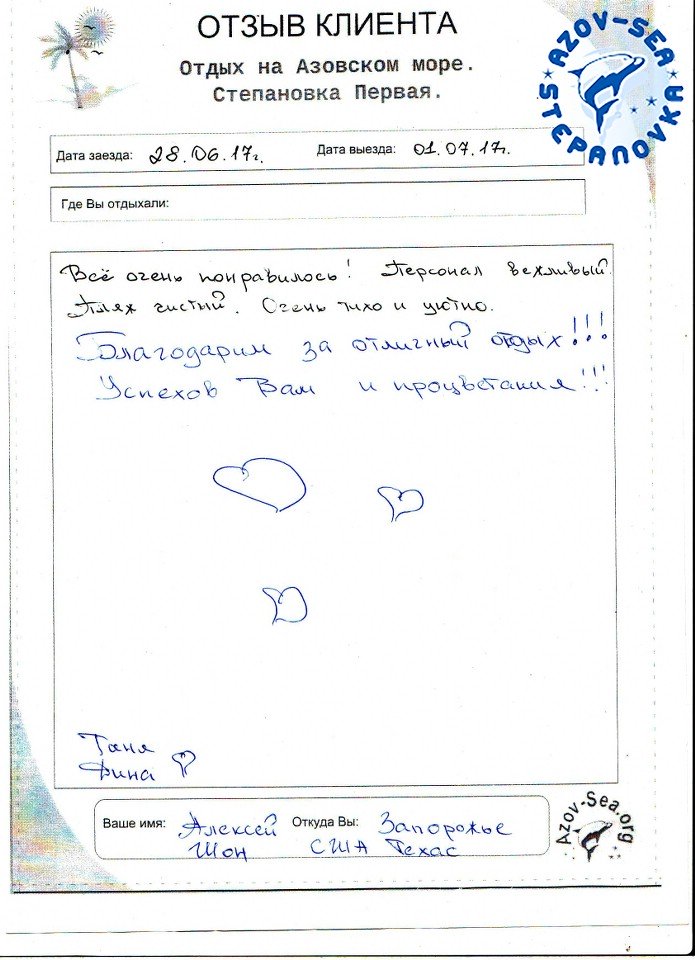 ОТЗЫВ КЛИЕНТА
Отдых на Азовском море.
Степановка Первая.
AZOV-SEA
STEPANOVKA
Дата заезда: 28.06.17г. Дата выезда: 01.07.17г.
Где Вы отдыхали:
Всё очень понравилось! Персонал вежливый.
Пляж чистый. Очень тихо и уютно.
Благодарим за отличный отдых!!!
Успехов Вам и процветания!!!
Таня
Дина
Ваше имя: Алексей Откуда Вы: Запорожье
Шон США Техас
Azov-Sea.org